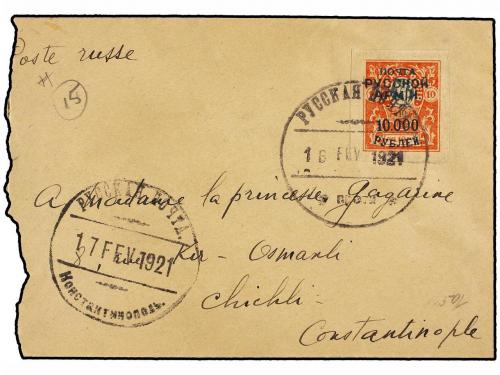 Poste russe
15
ПОЧТА
РУССКОЙ
АРМІИ
10
10.000
РУБЛЕЙ.
РУССКАЯ
16 FEV 1921
A Madame la princesse Gagarine
8, Rue Kir - Osmanli
Chichli -
Constantinople
РУССКАЯ ПОЧТА.
17 FEV. 1921
КОНСТАНТИНОПОЛЬ.